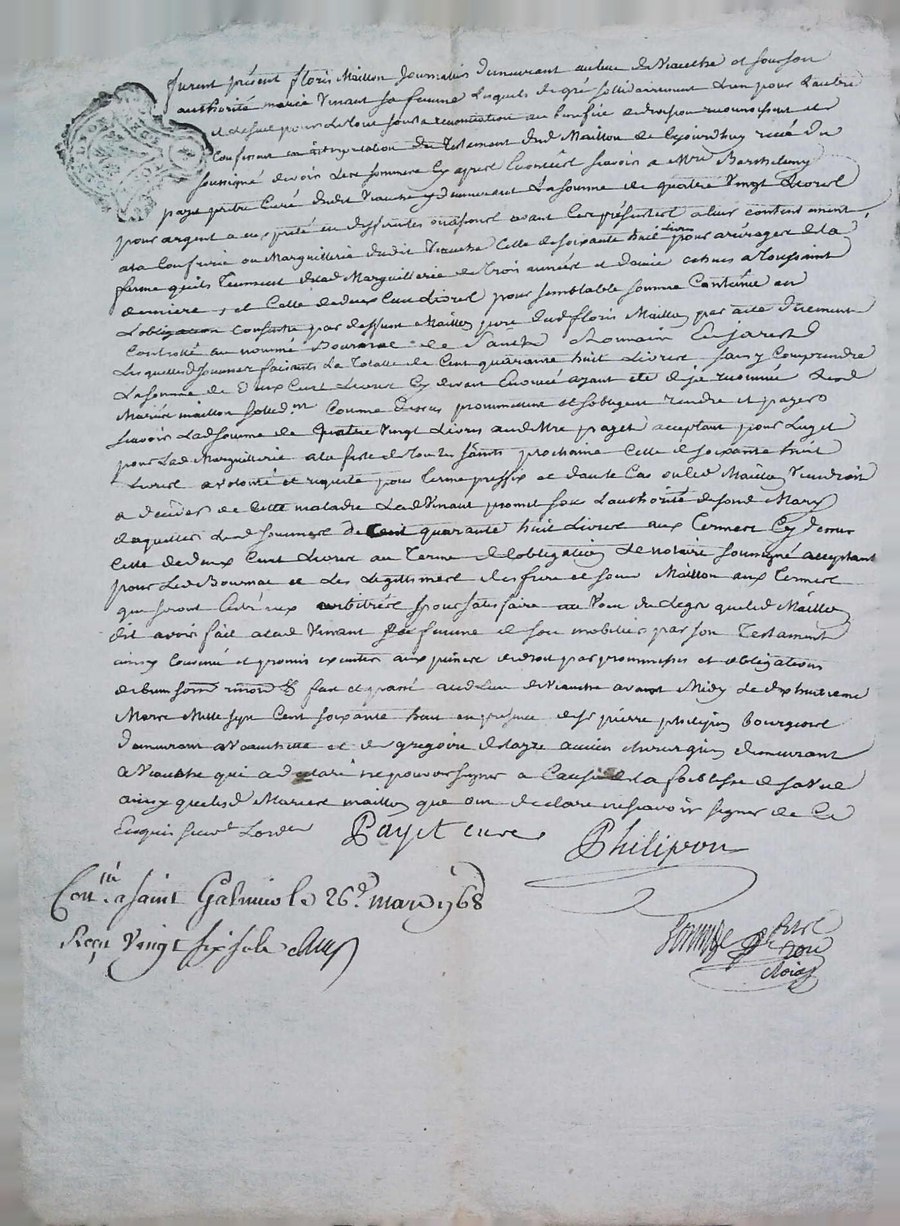 furent présent floris Maillon Journalier demeurant au lieu de Viauche et sous son
authorité marie Vinant sa femme Lesquels de gré sollidairement L'un pour L'autre
et de seul pour Le tout sous La renontiation au benefice de droit reconnoissent et
Confessent en interpretation du Testament dud Maillon de Cejourdhuy receu du
soussigné devoir Les sommes Cy apres Enoncées savoir a Mre Barthelemy
payet pretre Curé dudit Viauche y demeurant La somme de quatre Vingt Livres
pour argent a eux prété en differentes ocasions avant Ces présentes a leur contentement
a la Confrerie ou Marguillerie dudit Viauche Celle de soixante huit Livres pour arrérages de la
ferme quils Tiennent de lad Marguillerie de Trois années et demie echues a Toussaint
derniere, et Celle de deux Cent Livres pour semblable somme Contenue en
L'obligation Consentie par deffunt Maillon pere dud floris Maillon par acte duement
Controllé au nommé Bournat de Sainct Romain En jarest
Lesquelles d sommes faisants La Totalle de Cent quarante huit Livres sans y Comprendre
La somme de Deux Cent Livres Cy devant Enoncée ayant eté deja
Mariés maillon sollid.nt Comme dessus promettent et sobligent rendre et payer
savoir Lad somme de quatre Vingt Livres aud Mre payet acceptant pour Luy et
pour Lad Marguillerie a la feste de Tous les Saints prochaine Celle de soixante huit
Livres a volonté et requete pour terme preffix et d'autre Cas ou led Maillon Viendroit
a deceder de Cette maladie Lad Vinant promet sous L'authorité de sond Mary
d'aquitter Lesd sommes de Cent quarante huit Livres aux Termes Cy dessus
Celle de deux Cent Livres au Terme de L'obligation Le notaire soussigné acceptant
pour Led Bournat et Les Legittimes des frere et soeur Maillon aux Termes
qui seront arbitrés pour satisfaire au du Legs que led Maillon
dit avoir fait a lad Vinant sa femme de son mobilier par son Testament
ainsy Convenu et promis executer aux peines de droit par prommesses et obligations
de biens soum renon &c fait et passé aud Lieu de Viauche avant Midy Le dixhuitieme
Mars Mille sept Cent soixante huit en presence de Sr pierre philipon bourgeois
demeurant a Viauche et de gregoire ancien chirurgien demeurant
a Viauche qui a declaré ne pouvoir signer a Cause de la foiblesse de sa Vue
ainsy que led Mariés maillon qui ont declaré ne scavoir signer de Ce
Enquis suiv.t L'orde
Payet curé
Philipon
Con.lé a saint Galmier le 26.e mars 1768
Reçu Vingt six sols